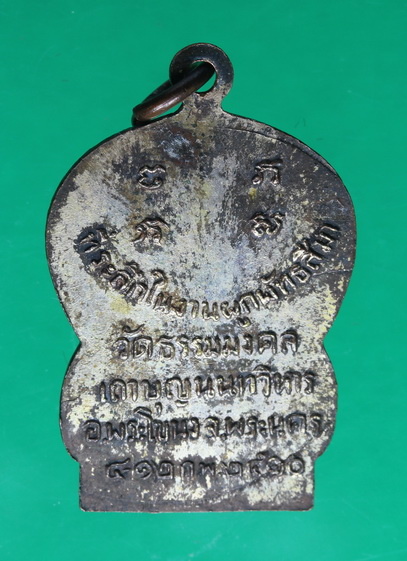 ที่ระลึกในงานผูกพัทธสีมา
วัดธรรมมงคล
เถาบุญนนทวิหาร
อ.พระโขนง จ.พระนคร
กพ.๒๕๑๐